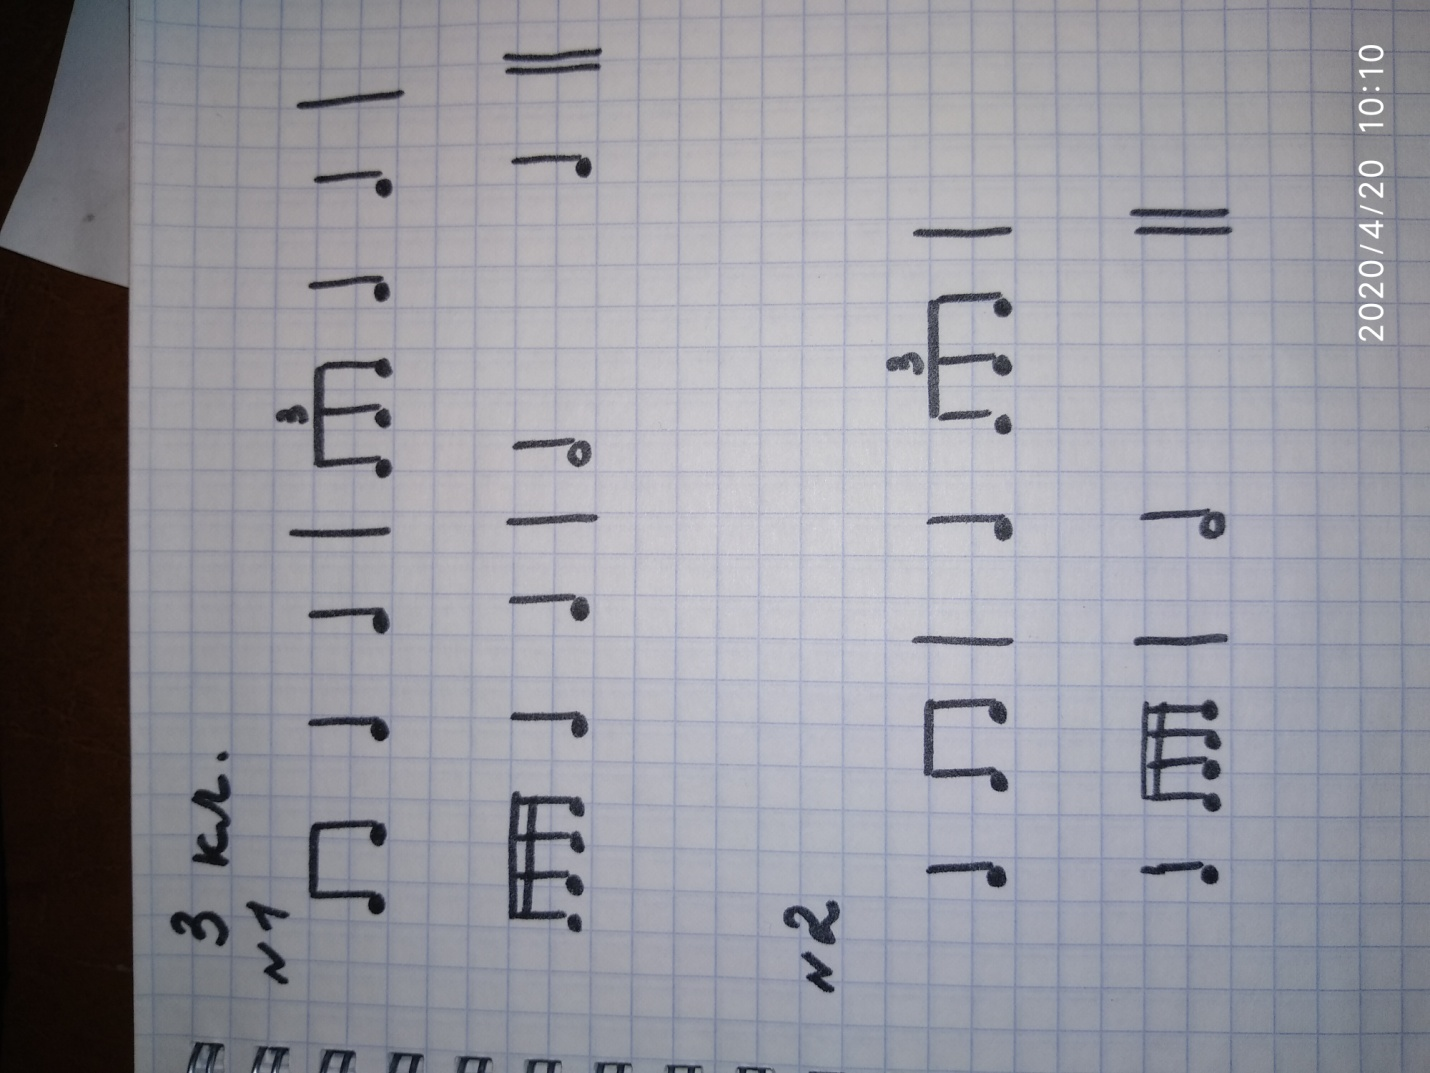 3 кл.
N1
3
N2
3
2020/4/20 10:10